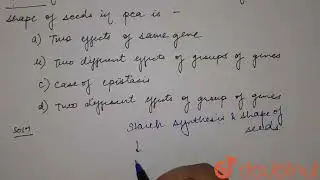 shape of seeds in pea is -
a) Two effects of same gene
b) Two different effects of groups of genes
c) Case of epistasis
d) Two different effects of group of genes
Soln
Starch synthesis & shape of
seeds